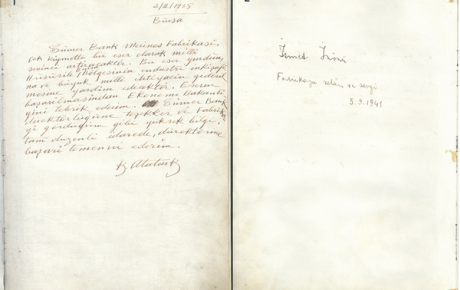 2/2/1938
Bursa
Sümer Bank Merinos Fabrikası,
çok kıymetli bir eser olarak millî
sevinci artıracaktır. Bu eser yurdun,
Bölgesinin endüstri inkişafı-
na ve büyük millî ihtiyacın
mesine yardım edecektir. Eserin
başarılmasından Ekonomi Bakanlı-
ğını tebrik ederim. Sümer Bank
Direktörlüğüne teşekkür ve Fabrika
yı gördüğüm gibi yüksek bilgi,
tam düzenli idarede, direktörüne
başarı temenni ederim.
K. Atatürk
İsmet İnönü
Fabrikaya selâm ve sevgi
3.9.1941